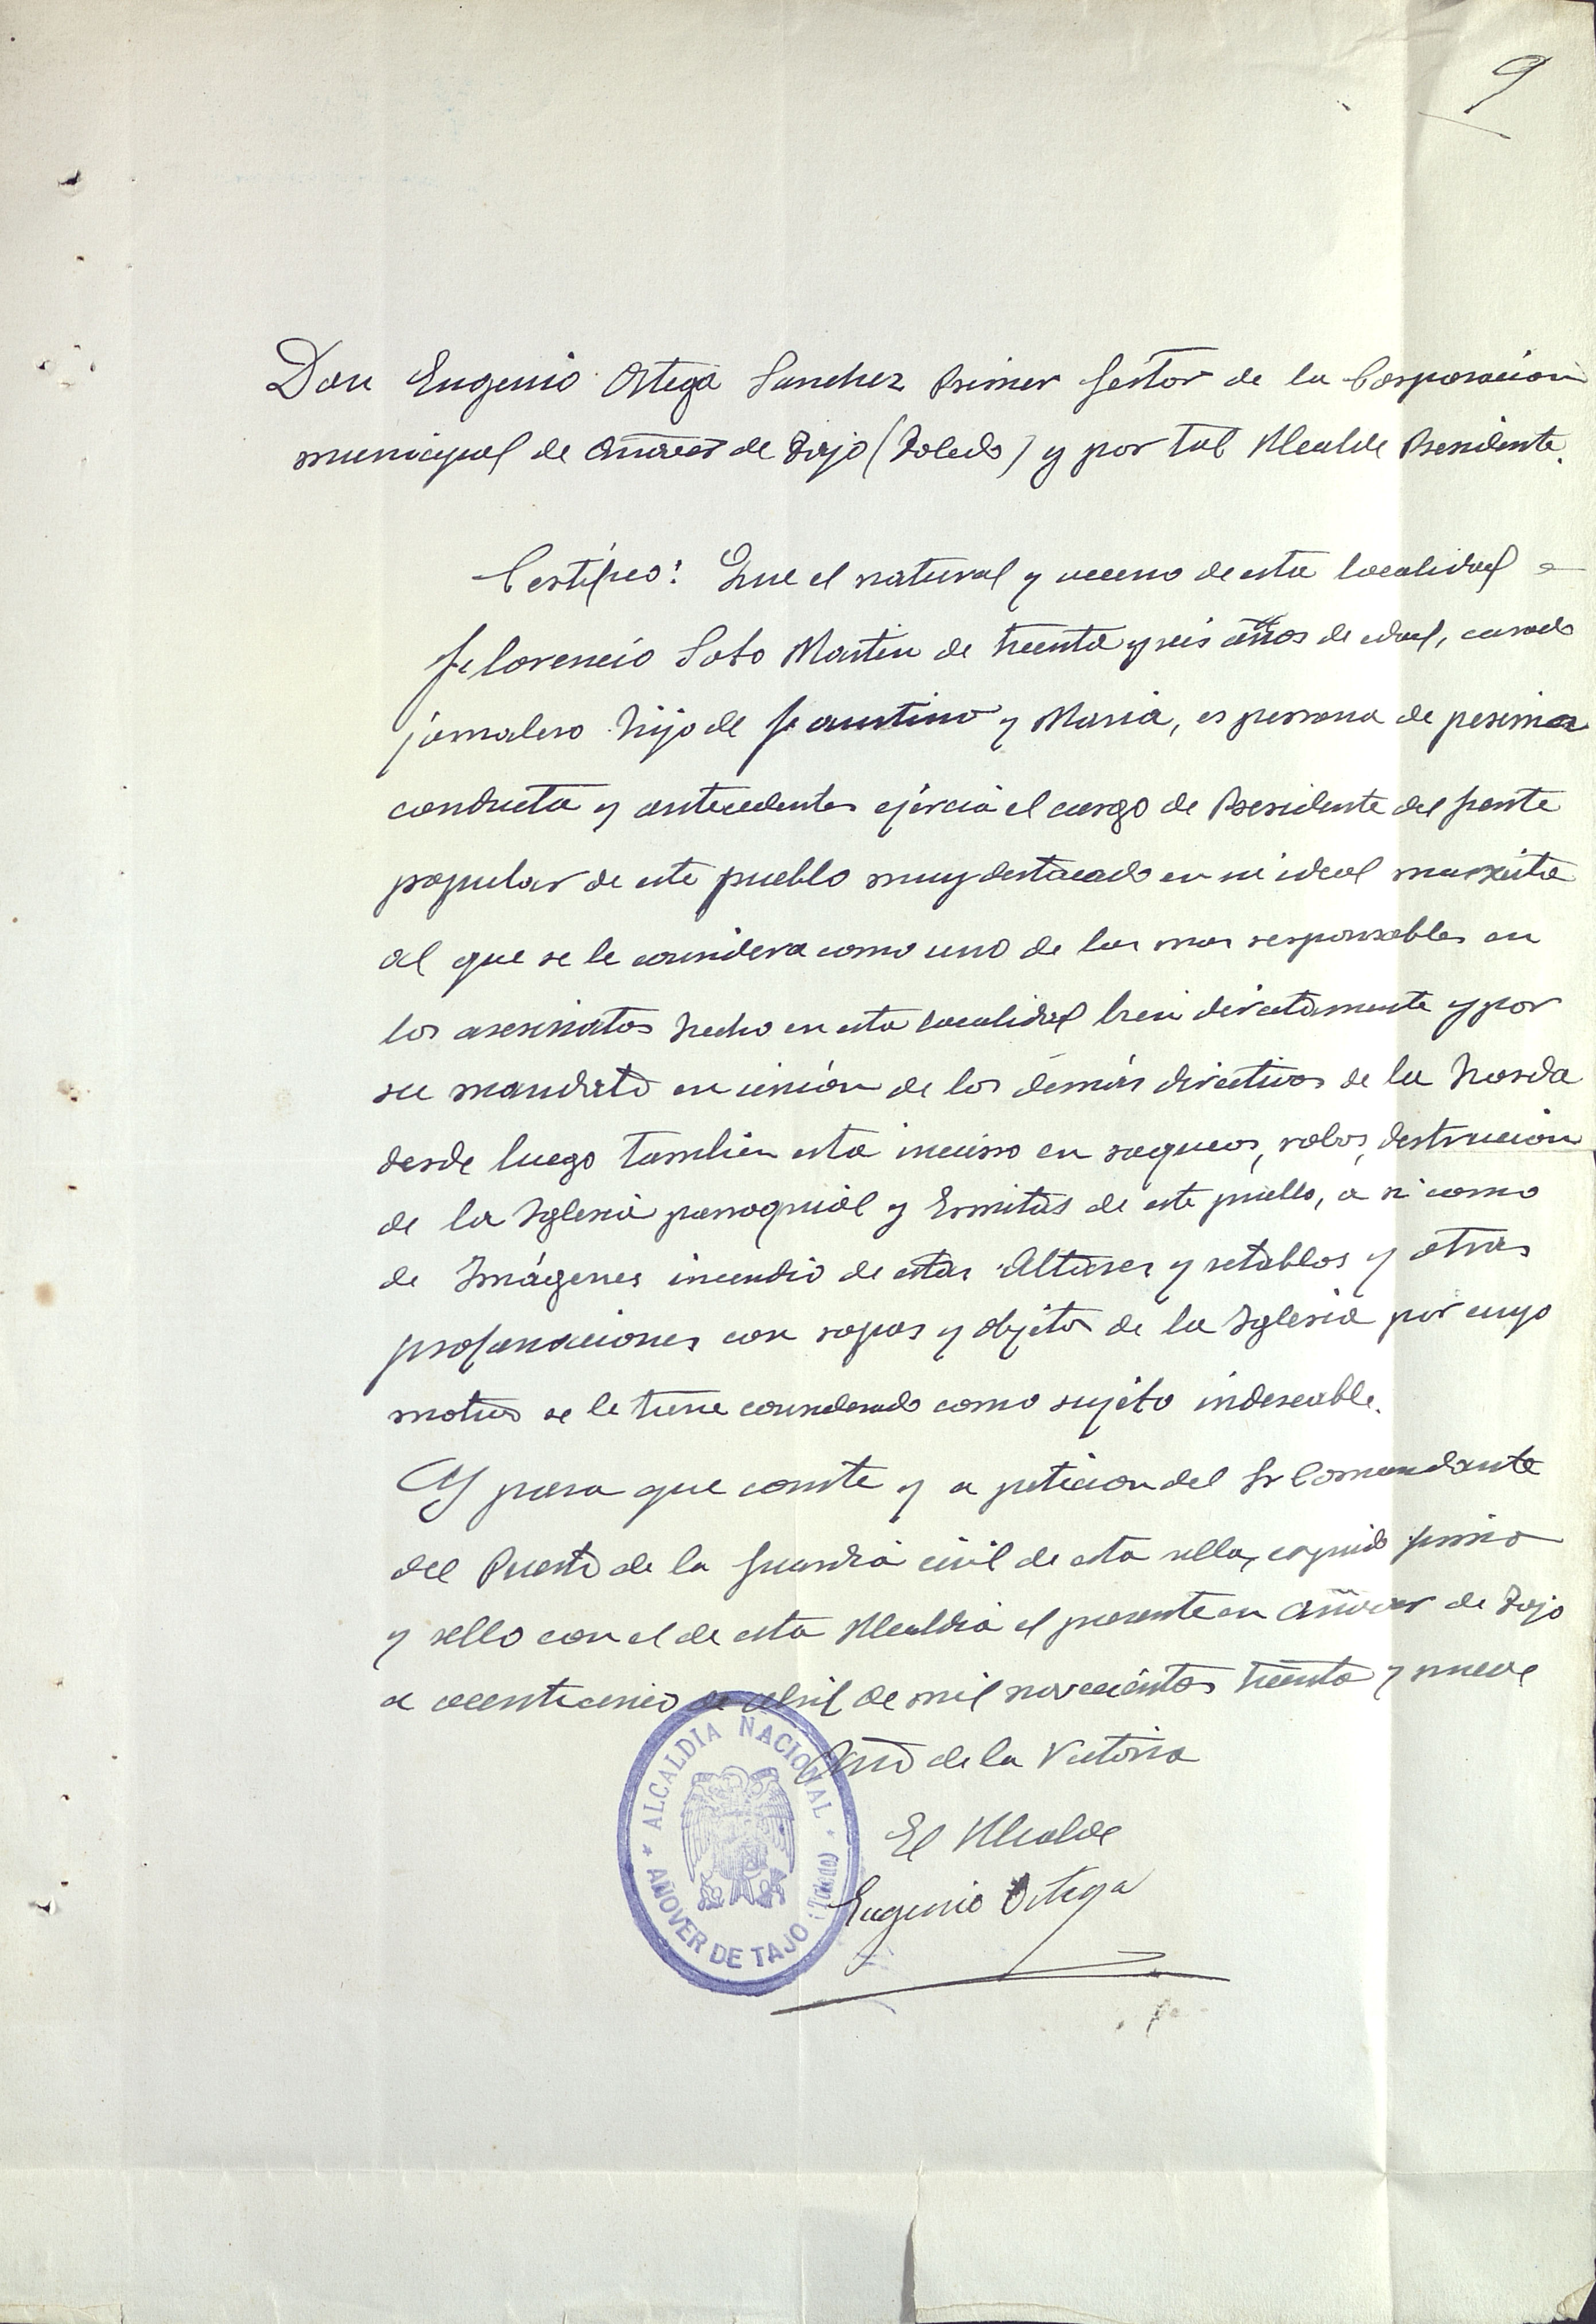 9
Don Eugenio Ortega Sanchez Primer Gestor de la Corporacion
municipal de Añover de Tajo (Toledo) y por tal Alcalde Presidente.
Certifico: Que el natural y vecino de esta localidad =
Florencio Soto Martin de treinta y seis años de edad, casado
jornalero hijo de Faustino y Maria, es persona de pesima
conducta y antecedentes ejercia el cargo de Presidente del frente
popular de este pueblo muy destacado en su ideal marxista
al que se le considera como uno de los mas responsables en
los asesinatos hecho en esta localidad bien directamente y por
su mandato en unión de los demás directivos de la horda
desde luego tambien esta incurso en saqueos, robos, destrucion
de la Iglesia parroquial y Ermitas de este pueblo, a si como
de Imágenes incendio de estas Altares y retablos y otras
profanaciones con ropas y objetos de la Iglesia por cuyo
motivo se le tiene considerado como sujeto indeseable.
Y para que conste y a peticion del Sr Comandante
del Puesto de la Guardia civil de esta villa, expido firmo
y sello con el de esta Alcaldia el presente en Añover de Tajo
a veinticinco de Abril de mil novecientos treinta y nueve
Año de la Victoria
El Alcalde
Eugenio Ortega
* ALCALDIA NACIONAL *
AÑOVER DE TAJO (Toledo)